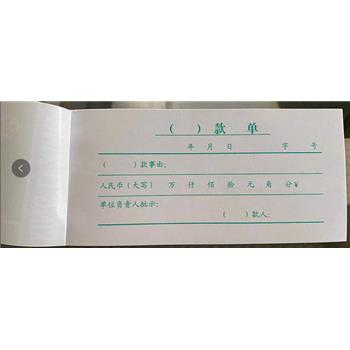 （ ）款 单
年 月 日 字 号
（ ）款事由：
人民币（大写） 万 仟 佰 拾 元 角 分 ¥
单位负责人批示：
（ ）款人：